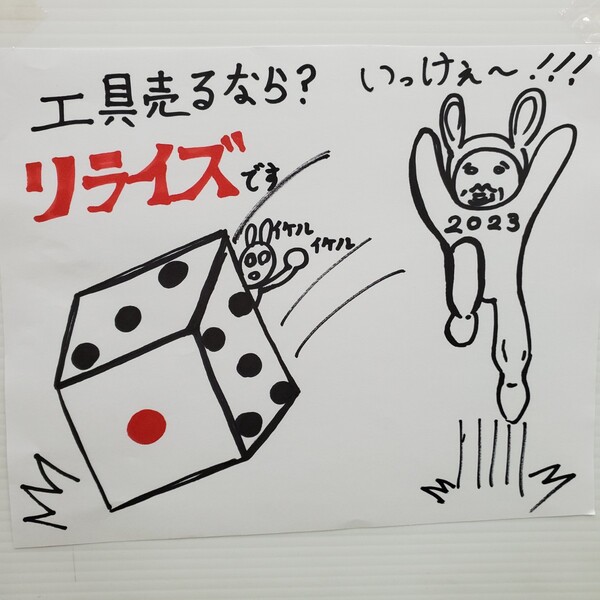 工具売るなら?
リライズです
いっけぇ〜!!!
イケル
イケル
2023